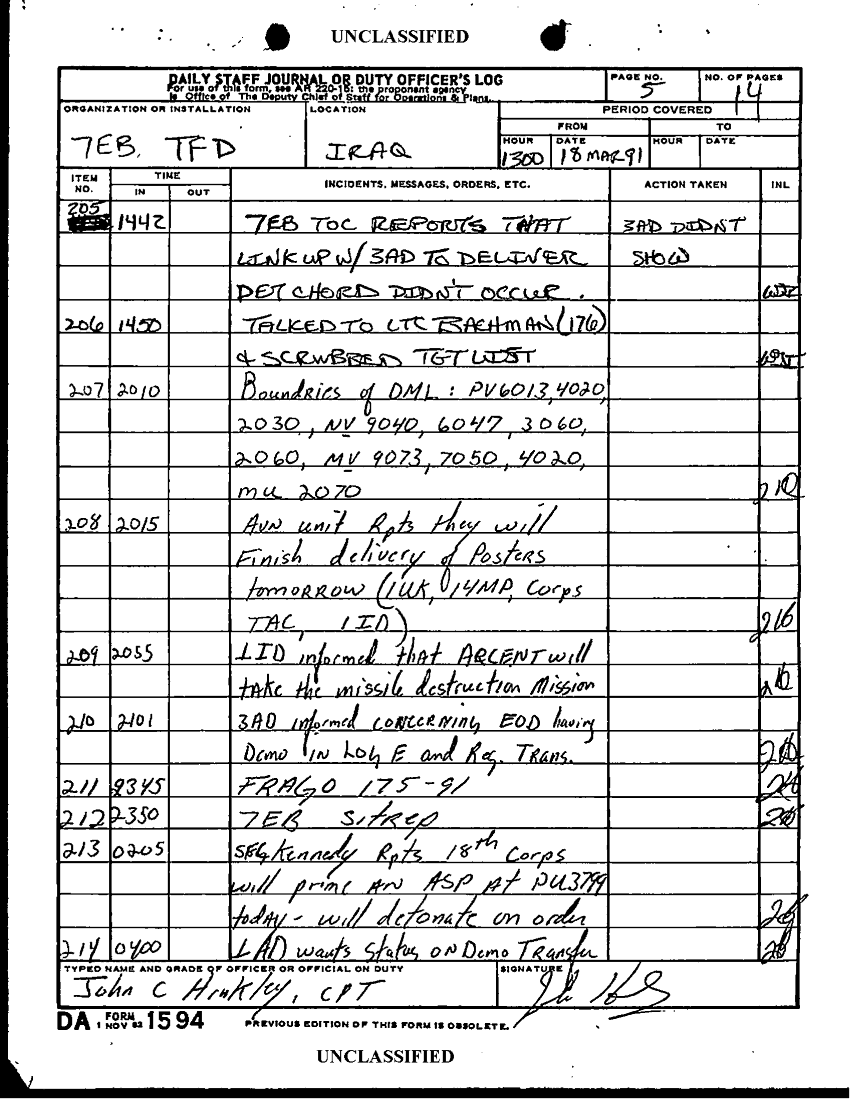 UNCLASSIFIED
DAILY STAFF JOURNAL OR DUTY OFFICER'S LOG
For use of this form, see AR 220-15; the proponent agency
is Office of The Deputy Chief of Staff for Operations & Plans.
PAGE NO.
5
NO. OF PAGES
14
ORGANIZATION OR INSTALLATION
7EB, TFD
LOCATION
IRAQ
PERIOD COVERED
FROM
TO
HOUR
1300
DATE
18 MAR 91
HOUR
DATE
ITEM NO.
TIME
IN
OUT
INCIDENTS, MESSAGES, ORDERS, ETC.
ACTION TAKEN
INL
205 1442 7EB TOC REPORTS THAT 3AD DIDNT
LINKUP W/ 3AD TO DELIVER SHOW
DET CHORD DIDN'T OCCUR.
206 1450 TALKED TO LTC BACHMAN (176)
& SCRWBBED TGT LIST
207 2010 Boundries of DML: PV6013, 4020,
2030, NV 9040, 6047, 3060,
2060, MV 9073, 7050, 4020,
mu 2070
208 2015 Avn unit Rpts they will
Finish delivery of Posters
tomorrow (1UK, 14MP, Corps
TAC, 1ID)
209 2055 1ID informed that ARCENT will
take the missile destruction Mission
210 2101 3AD informed concerning EOD having
Demo in Log E and Req. Trans.
211 2345 FRAGO 175-91
212 2350 7EB Sitrep
213 0205 Kennedy Rpts 18th Corps
will prime an ASP at PU3799
today - will detonate on order
214 0400 1AD wants status on Demo Transfer
TYPED NAME AND GRADE OF OFFICER OR OFFICIAL ON DUTY
John C Hinkley, CPT
SIGNATURE
DA FORM 1 NOV 62 1594
PREVIOUS EDITION OF THIS FORM IS OBSOLETE.
UNCLASSIFIED